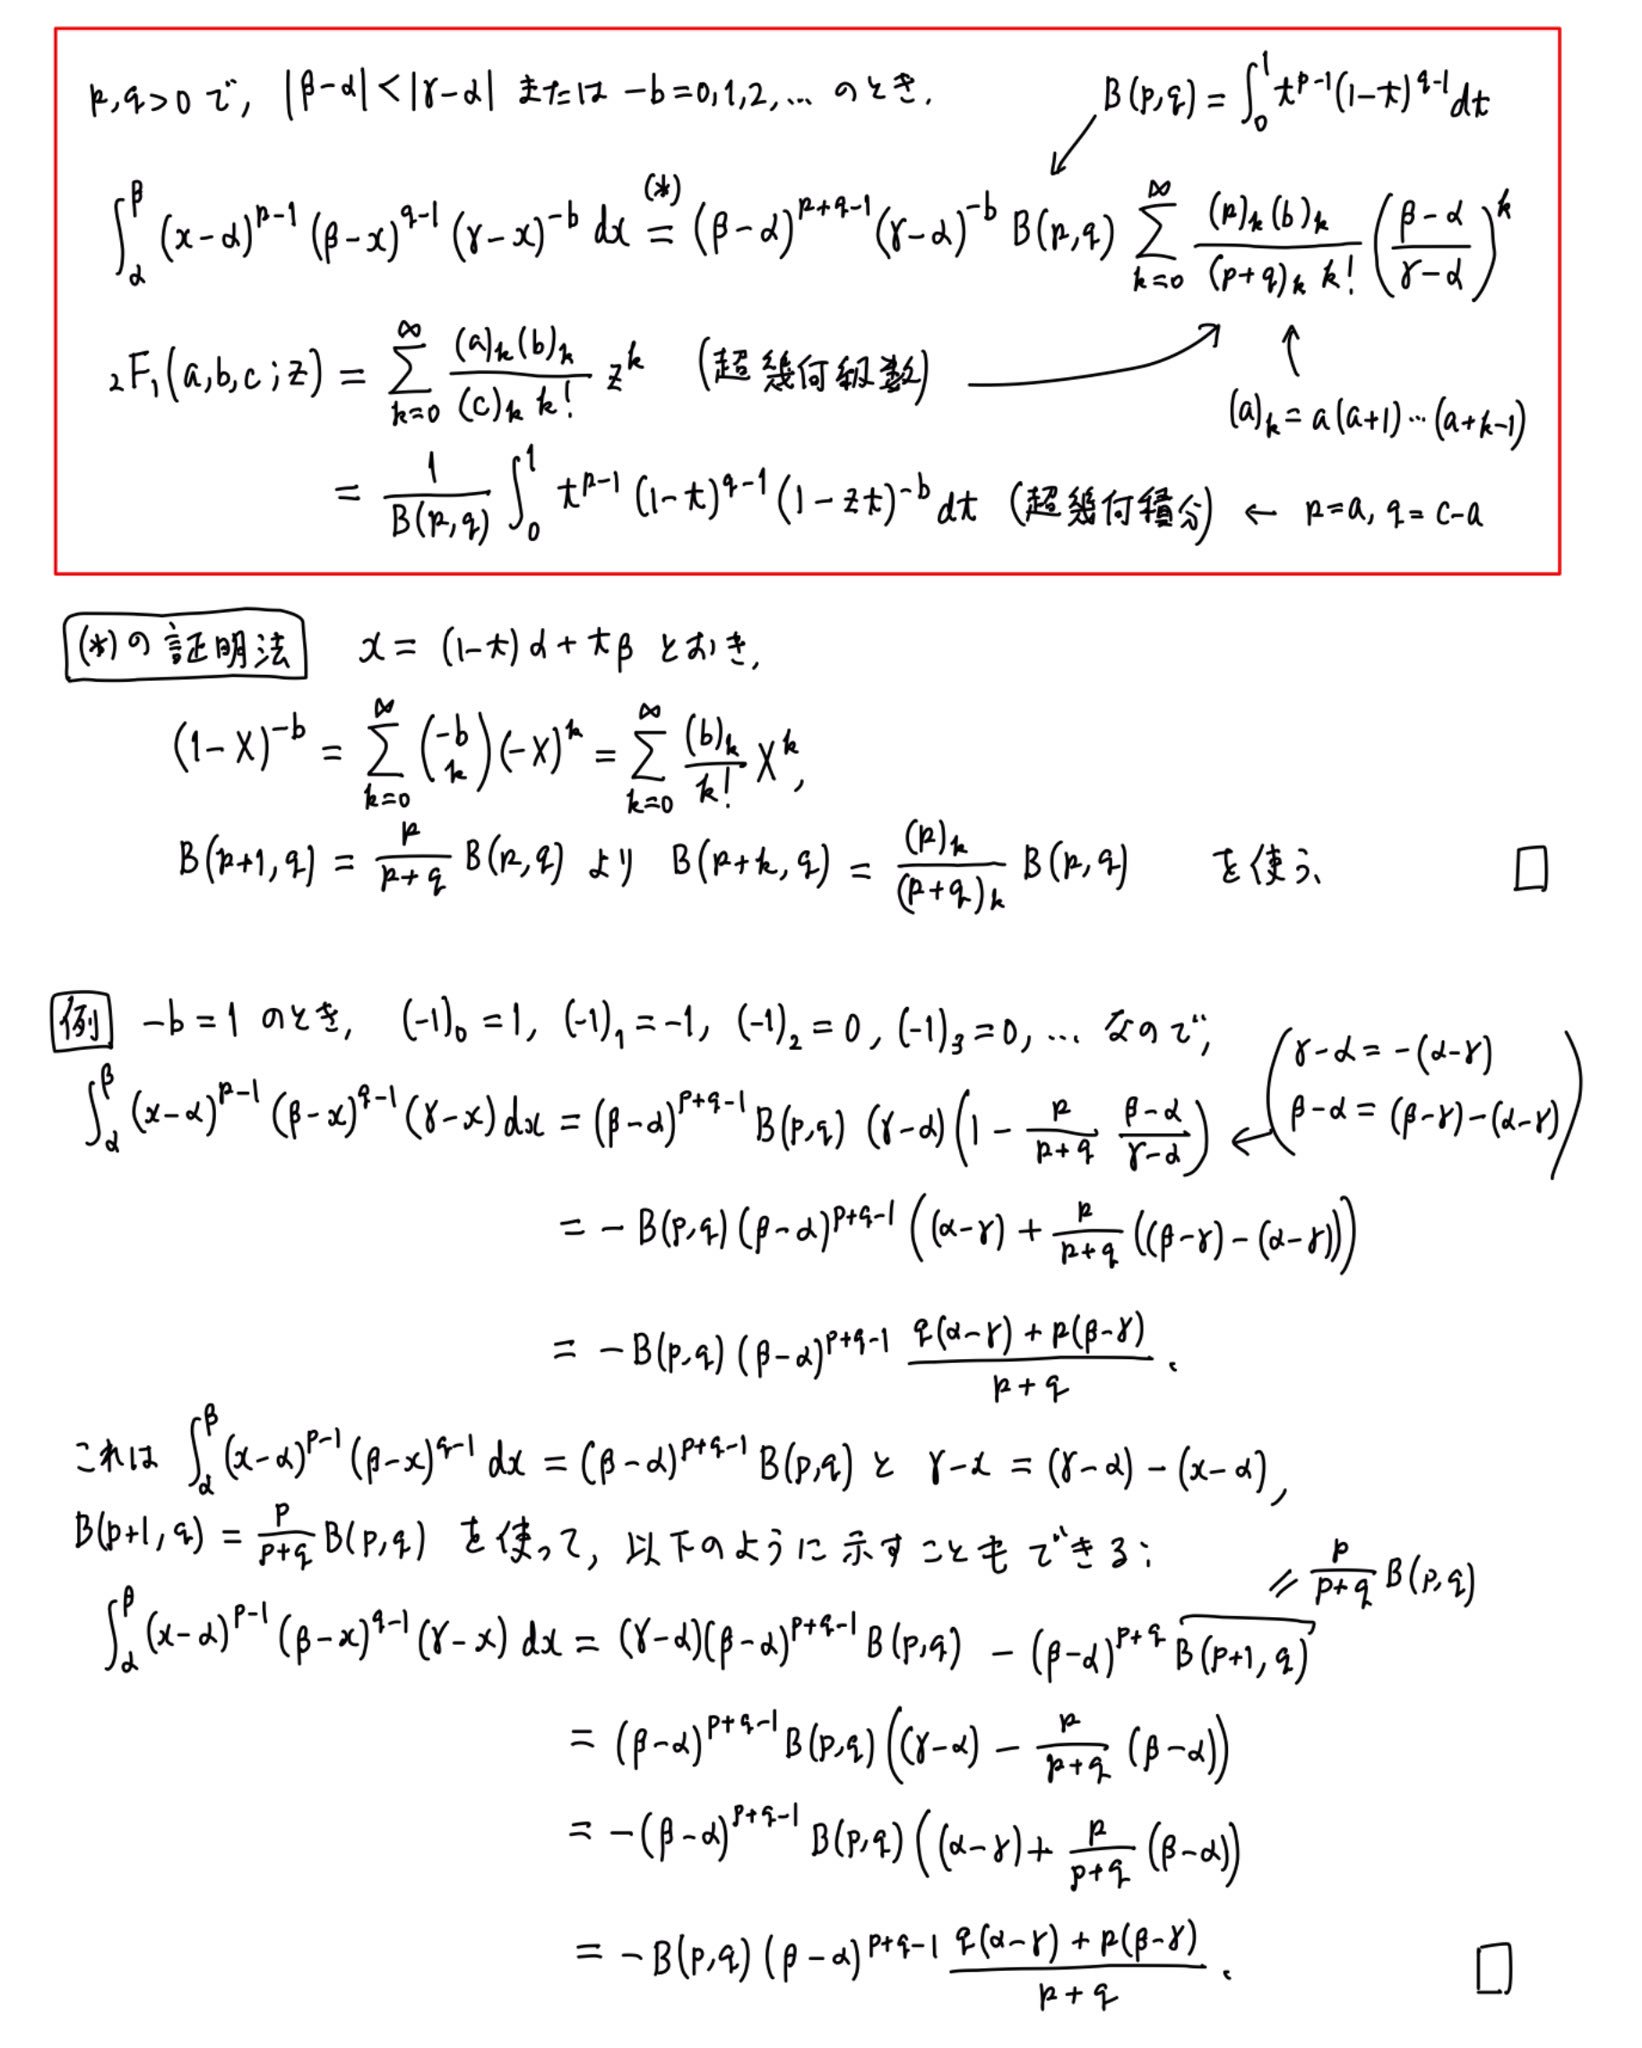 p,q>0 で, |β-α|<|γ-α| または -b=0,1,2,… のとき, B(p,q) = ∫_0^1 t^{p-1}(1-t)^{q-1}dt
∫_α^β (x-α)^{p-1}(β-x)^{q-1}(γ-x)^{-b} dx (*)= (β-α)^{p+q-1}(γ-α)^{-b} B(p,q) ∑_{k=0}^∞ \frac{(p)_k(b)_k}{(p+q)_k k!} (\frac{β-α}{γ-α})^k
₂F₁(a,b,c;z) = ∑_{k=0}^∞ \frac{(a)_k(b)_k}{(c)_k k!} z^k (超幾何級数)
(a)_k = a(a+1)…(a+k-1)
= \frac{1}{B(p,q)} ∫_0^1 t^{p-1}(1-t)^{q-1}(1-zt)^{-b}dt (超幾何積分) ← p=a, q=c-a
(*)の証明法 x = (1-t)α+tβ とおき,
(1-X)^{-b} = ∑_{k=0}^∞ \binom{-b}{k}(-X)^k = ∑_{k=0}^∞ \frac{(b)_k}{k!} X^k,
B(p+1,q) = \frac{p}{p+q} B(p,q) より B(p+k,q) = \frac{(p)_k}{(p+q)_k} B(p,q) を使う、 □
例 -b=1 のとき, (-1)_0=1, (-1)_1=-1, (-1)_2=0, (-1)_3=0, … なので,
(γ-α = -(α-γ)
β-α = (β-γ)-(α-γ))
∫_α^β (x-α)^{p-1}(β-x)^{q-1}(γ-x)dx = (β-α)^{p+q-1}B(p,q)(γ-α)(1-\frac{p}{p+q}\frac{β-α}{γ-α}) ←
= -B(p,q)(β-α)^{p+q-1}((α-γ)+\frac{p}{p+q}((β-γ)-(α-γ)))
= -B(p,q)(β-α)^{p+q-1}\frac{q(α-γ)+p(β-γ)}{p+q}、
これは ∫_α^β (x-α)^{p-1}(β-x)^{q-1}dx = (β-α)^{p+q-1}B(p,q) と γ-x = (γ-α)-(x-α),
B(p+1,q) = \frac{p}{p+q}B(p,q) を使って, 以下のように示すこともできる:
= \frac{p}{p+q}B(p,q)
∫_α^β (x-α)^{p-1}(β-x)^{q-1}(γ-x)dx = (γ-α)(β-α)^{p+q-1}B(p,q) - (β-α)^{p+q}B(p+1,q)
= (β-α)^{p+q-1}B(p,q)((γ-α)-\frac{p}{p+q}(β-α))
= -(β-α)^{p+q-1}B(p,q)((α-γ)+\frac{p}{p+q}(β-α))
= -B(p,q)(β-α)^{p+q-1}\frac{q(α-γ)+p(β-γ)}{p+q}、 □